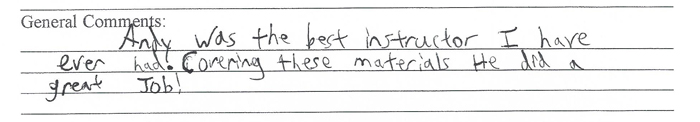 General Comments:
Andy was the best instructor I have
ever had. Covering these materials He did a
great Job!